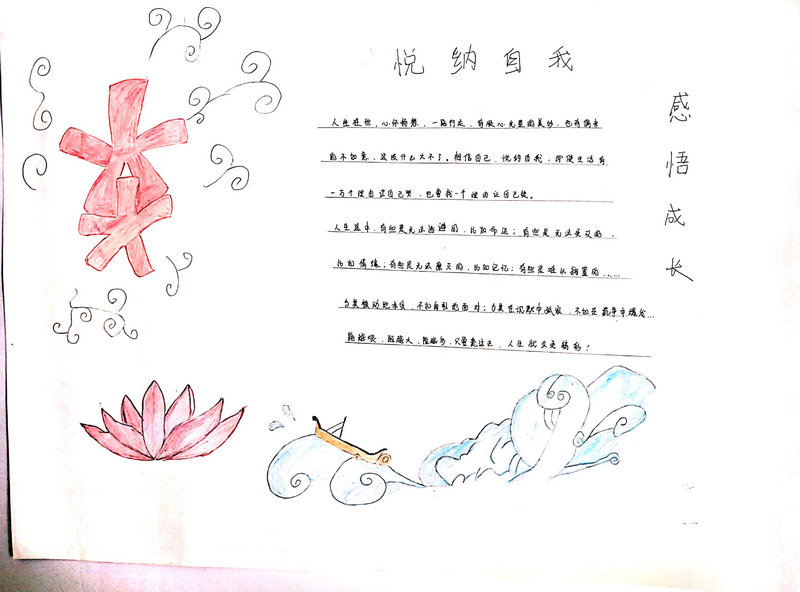 悦纳自我
感悟成长
人生在世,心怀梦想,一路行走,有收心无量的美妙,也有偶来
的不如意,这没什么大不了。相信自己,悦纳自我,即使生活有
一万个理由让自己哭,也要找一个理由让自己笑。
人生其中,有些是无法逃避的,比如命运;有些是无法更改的,
比如情缘;有些是无法磨灭的,比如记忆;有些是难以搁置的……
与其被动地承受,不如勇敢地面对;与其在沉默中孤寂,不如在抗争中爆发…
路越险,阻越大,险越多,只要走过去,人生就会更精彩!